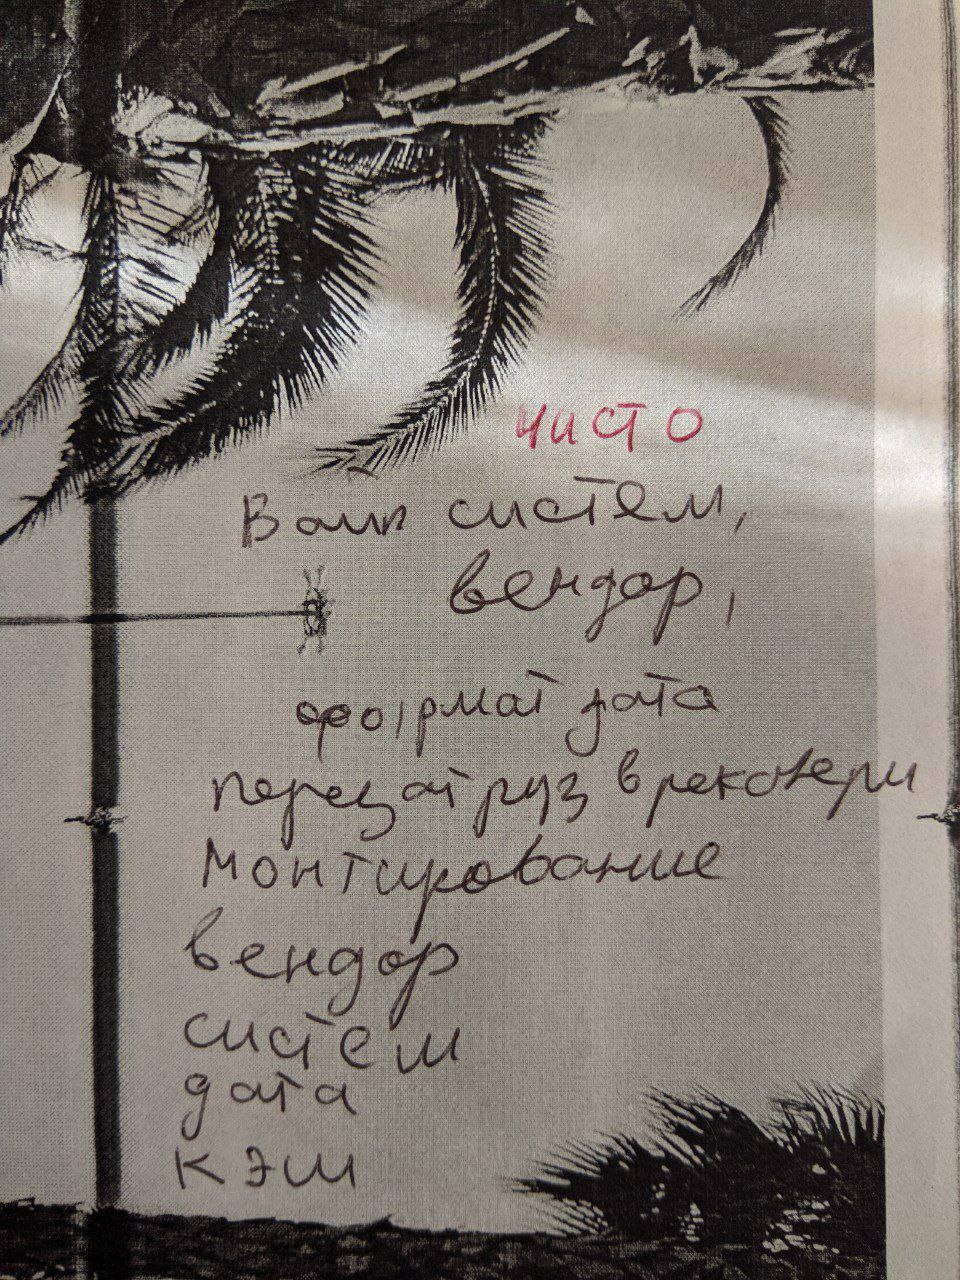 чисто
Вайп систем,
вендор,
формат дата
перезагруз в рековери
Монтирование
вендор
систем
дата
кэш